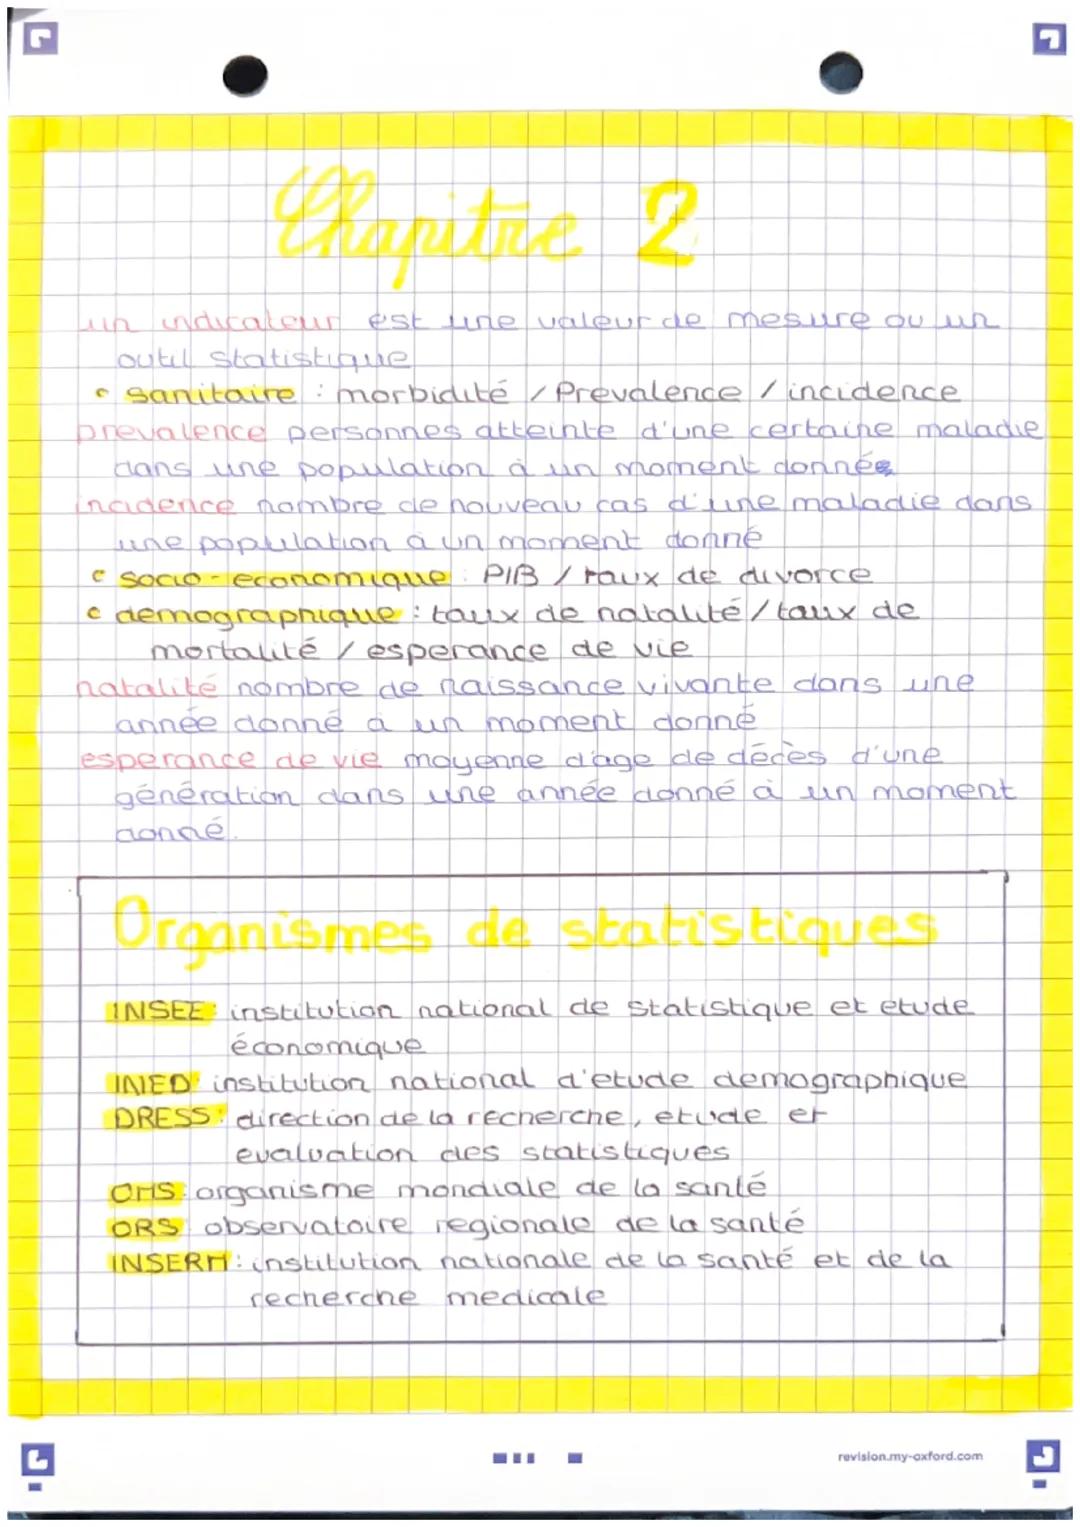 Chapitre 2
un indicateur est une valeur de mesure ou un
outil statistique
• sanitaire : morbidité / Prevalence / incidence
prevalence personnes atteinte d'une certaine maladie
dans une population à un moment donnée
incidence nombre de nouveau cas d'une maladie dans
une population à un moment donné
• socio-economique : PIB / taux de divorce
• demographique : taux de natalité / taux de
mortalité / esperance de vie
natalité nombre de naissance vivante dans une
année donné à un moment donné
esperance de vie moyenne d'age de décès d'une
génération dans une année donné à un moment
donné.
Organismes de statistiques
INSEE : institution national de statistique et etude
économique
INED : institution national d'etude demographique
DRESS : direction de la recherche, etude et
evaluation des statistiques
OMS : organisme mondiale de la santé
ORS : observatoire regionale de la santé
INSERM : institution nationale de la santé et de la
recherche medicale
revision.my-oxford.com